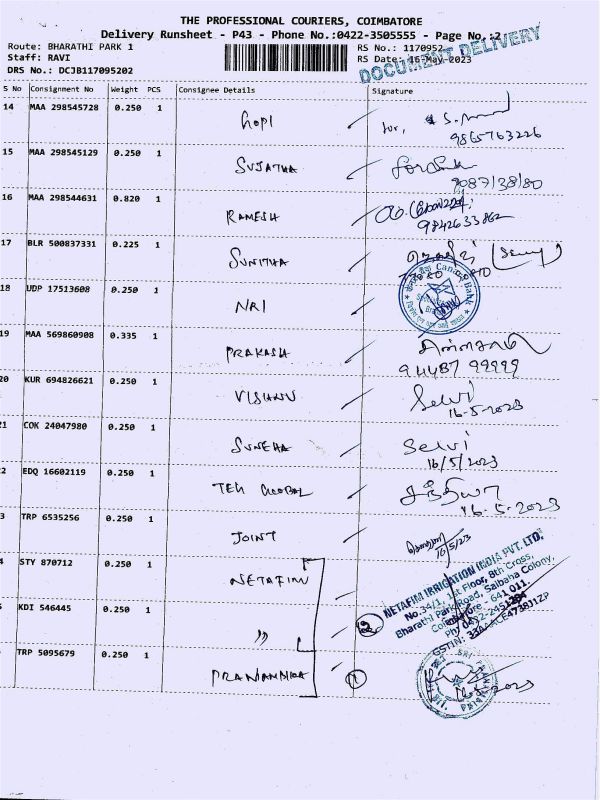 THE PROFESSIONAL COURIERS, COIMBATORE
Delivery Runsheet - P43 - Phone No.:0422-3505555 - Page No.:2
Route: BHARATHI PARK 1
RS No.: 1170952
Staff: RAVI
RS Date: 16-May-2023
DRS No.: DCJB117095202
DOCUMENT DELIVERY
S No Consignment No Weight PCS Consignee Details Signature
14 MAA 298545728 0.250 1 Gopi for,
9865763226
15 MAA 298545129 0.250 1 SUJATHA
16 MAA 298544631 0.820 1 RAMESH
9842633862
17 BLR 500837331 0.225 1 SUNITHA
18 UDP 17513608 0.250 1 NRI
Canara Bank
19 MAA 569860908 0.335 1 PRAKASH
94487 99999
20 KUR 694826621 0.250 1 VISHNU Selvi
16-5-2023
21 COK 24047980 0.250 1 SUNEHA Selvi
16/5/2023
2 EDQ 16602119 0.250 1 TEH GLOBAL சந்தியா
16-5-2023
3 TRP 6535256 0.250 1 JOINT
16/5/23
4 STY 870712 0.250 1 NETAFIM
KDI 546445 0.250 1 "
2
NETAFIM IRRIGATION INDIA PVT. LTD.
No.34/1, 1st Floor, 8th Cross,
Bharathi Park Road, Saibaba Colony,
Coimbatore - 641 011.
TRP 5095679 0.250 1
1